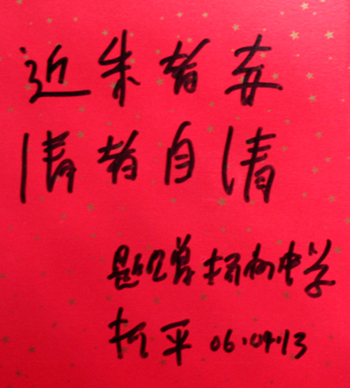 近朱者赤
清者自清
题赠扬州中学
柯平 06.04.13